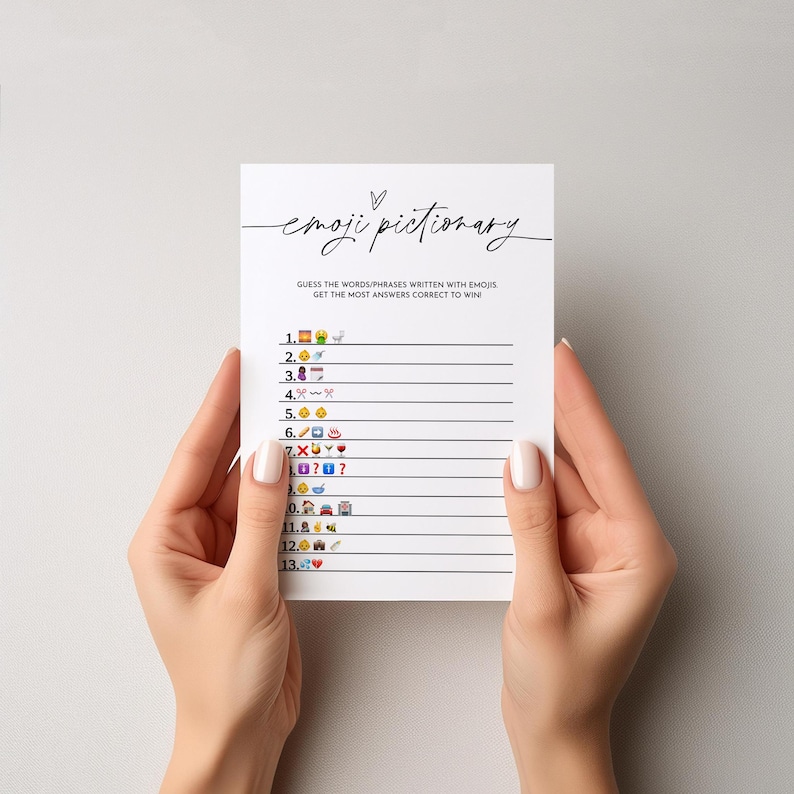 emoji pictionary
GUESS THE WORDS/PHRASES WRITTEN WITH EMOJIS.
GET THE MOST ANSWERS CORRECT TO WIN!
1. 🌅 🤮 🚽
2. 👶 🚿
3. 🤰🏿 🗓️
4. ✂️ 〰️ ✂️
5. 👶 👶
6. 🥖 ➡️ ♨️
7. ❌ 🍹 🍸 🍷
8. 🚺 ❓ 🚹 ❓
9. 👶 🥣
10. 🏠 🚘 🏥
11. 🤱🏿 ✌️ 🐝
12. 👶 💼 🍼
13. 💦 💔